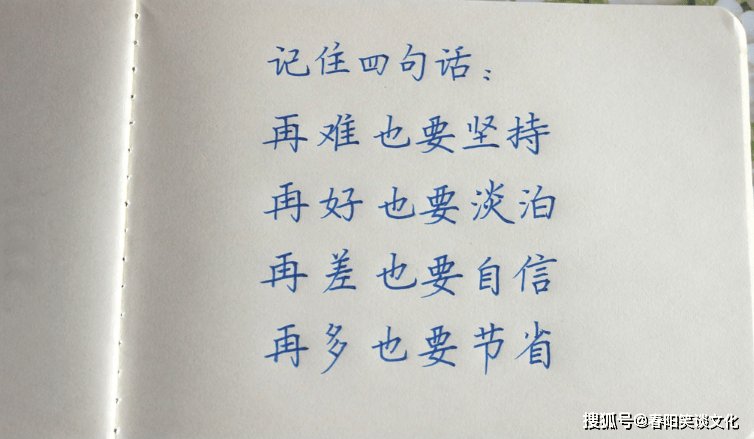 记住四句话：
再难也要坚持
再好也要淡泊
再差也要自信
再多也要节省
搜狐号@春阳笑谈文化